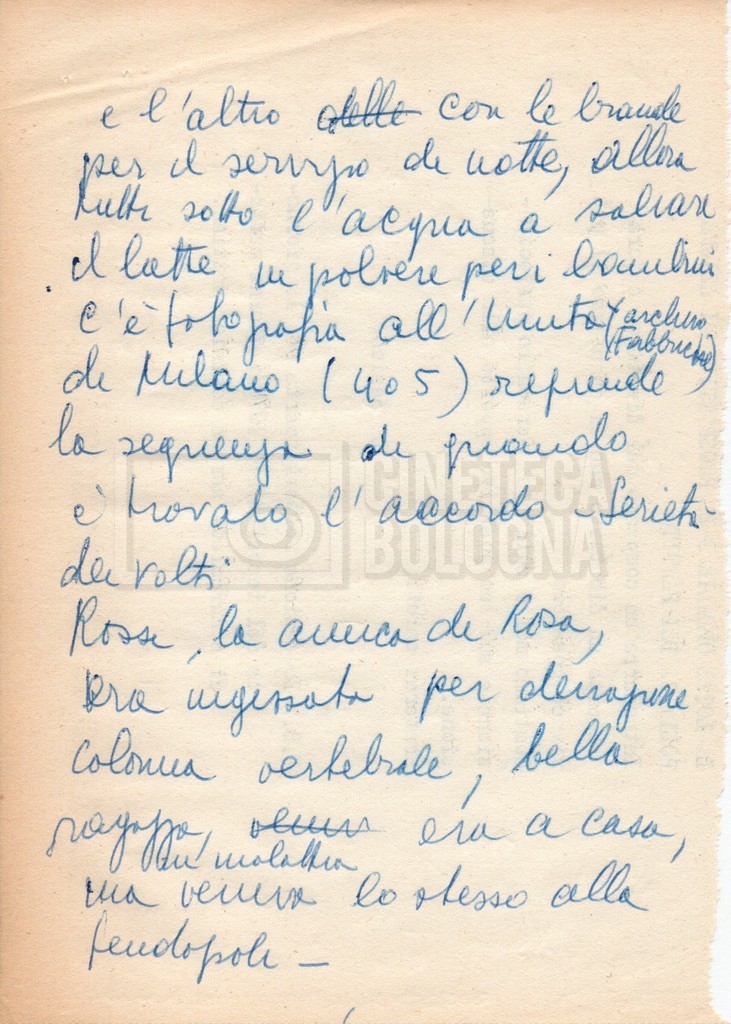 e l'altro delle con le brande
per il servizio di notte, allora
tutti sotto l'acqua a salvare
il latte in polvere per i bambini
c'è fotografia all'Unità (archivio
Fabbriche)
di Milano (405) riprende
la sequenza di quando
è trovato l'accordo - Serietà
dei volti
CINETECA
BOLOGNA
Rossi, la amica di Rosa,
era ingessata per deviazione
colonna vertebrale, bella
ragazza, era a casa,
in malattia
ma veniva lo stesso alla
tendopoli -